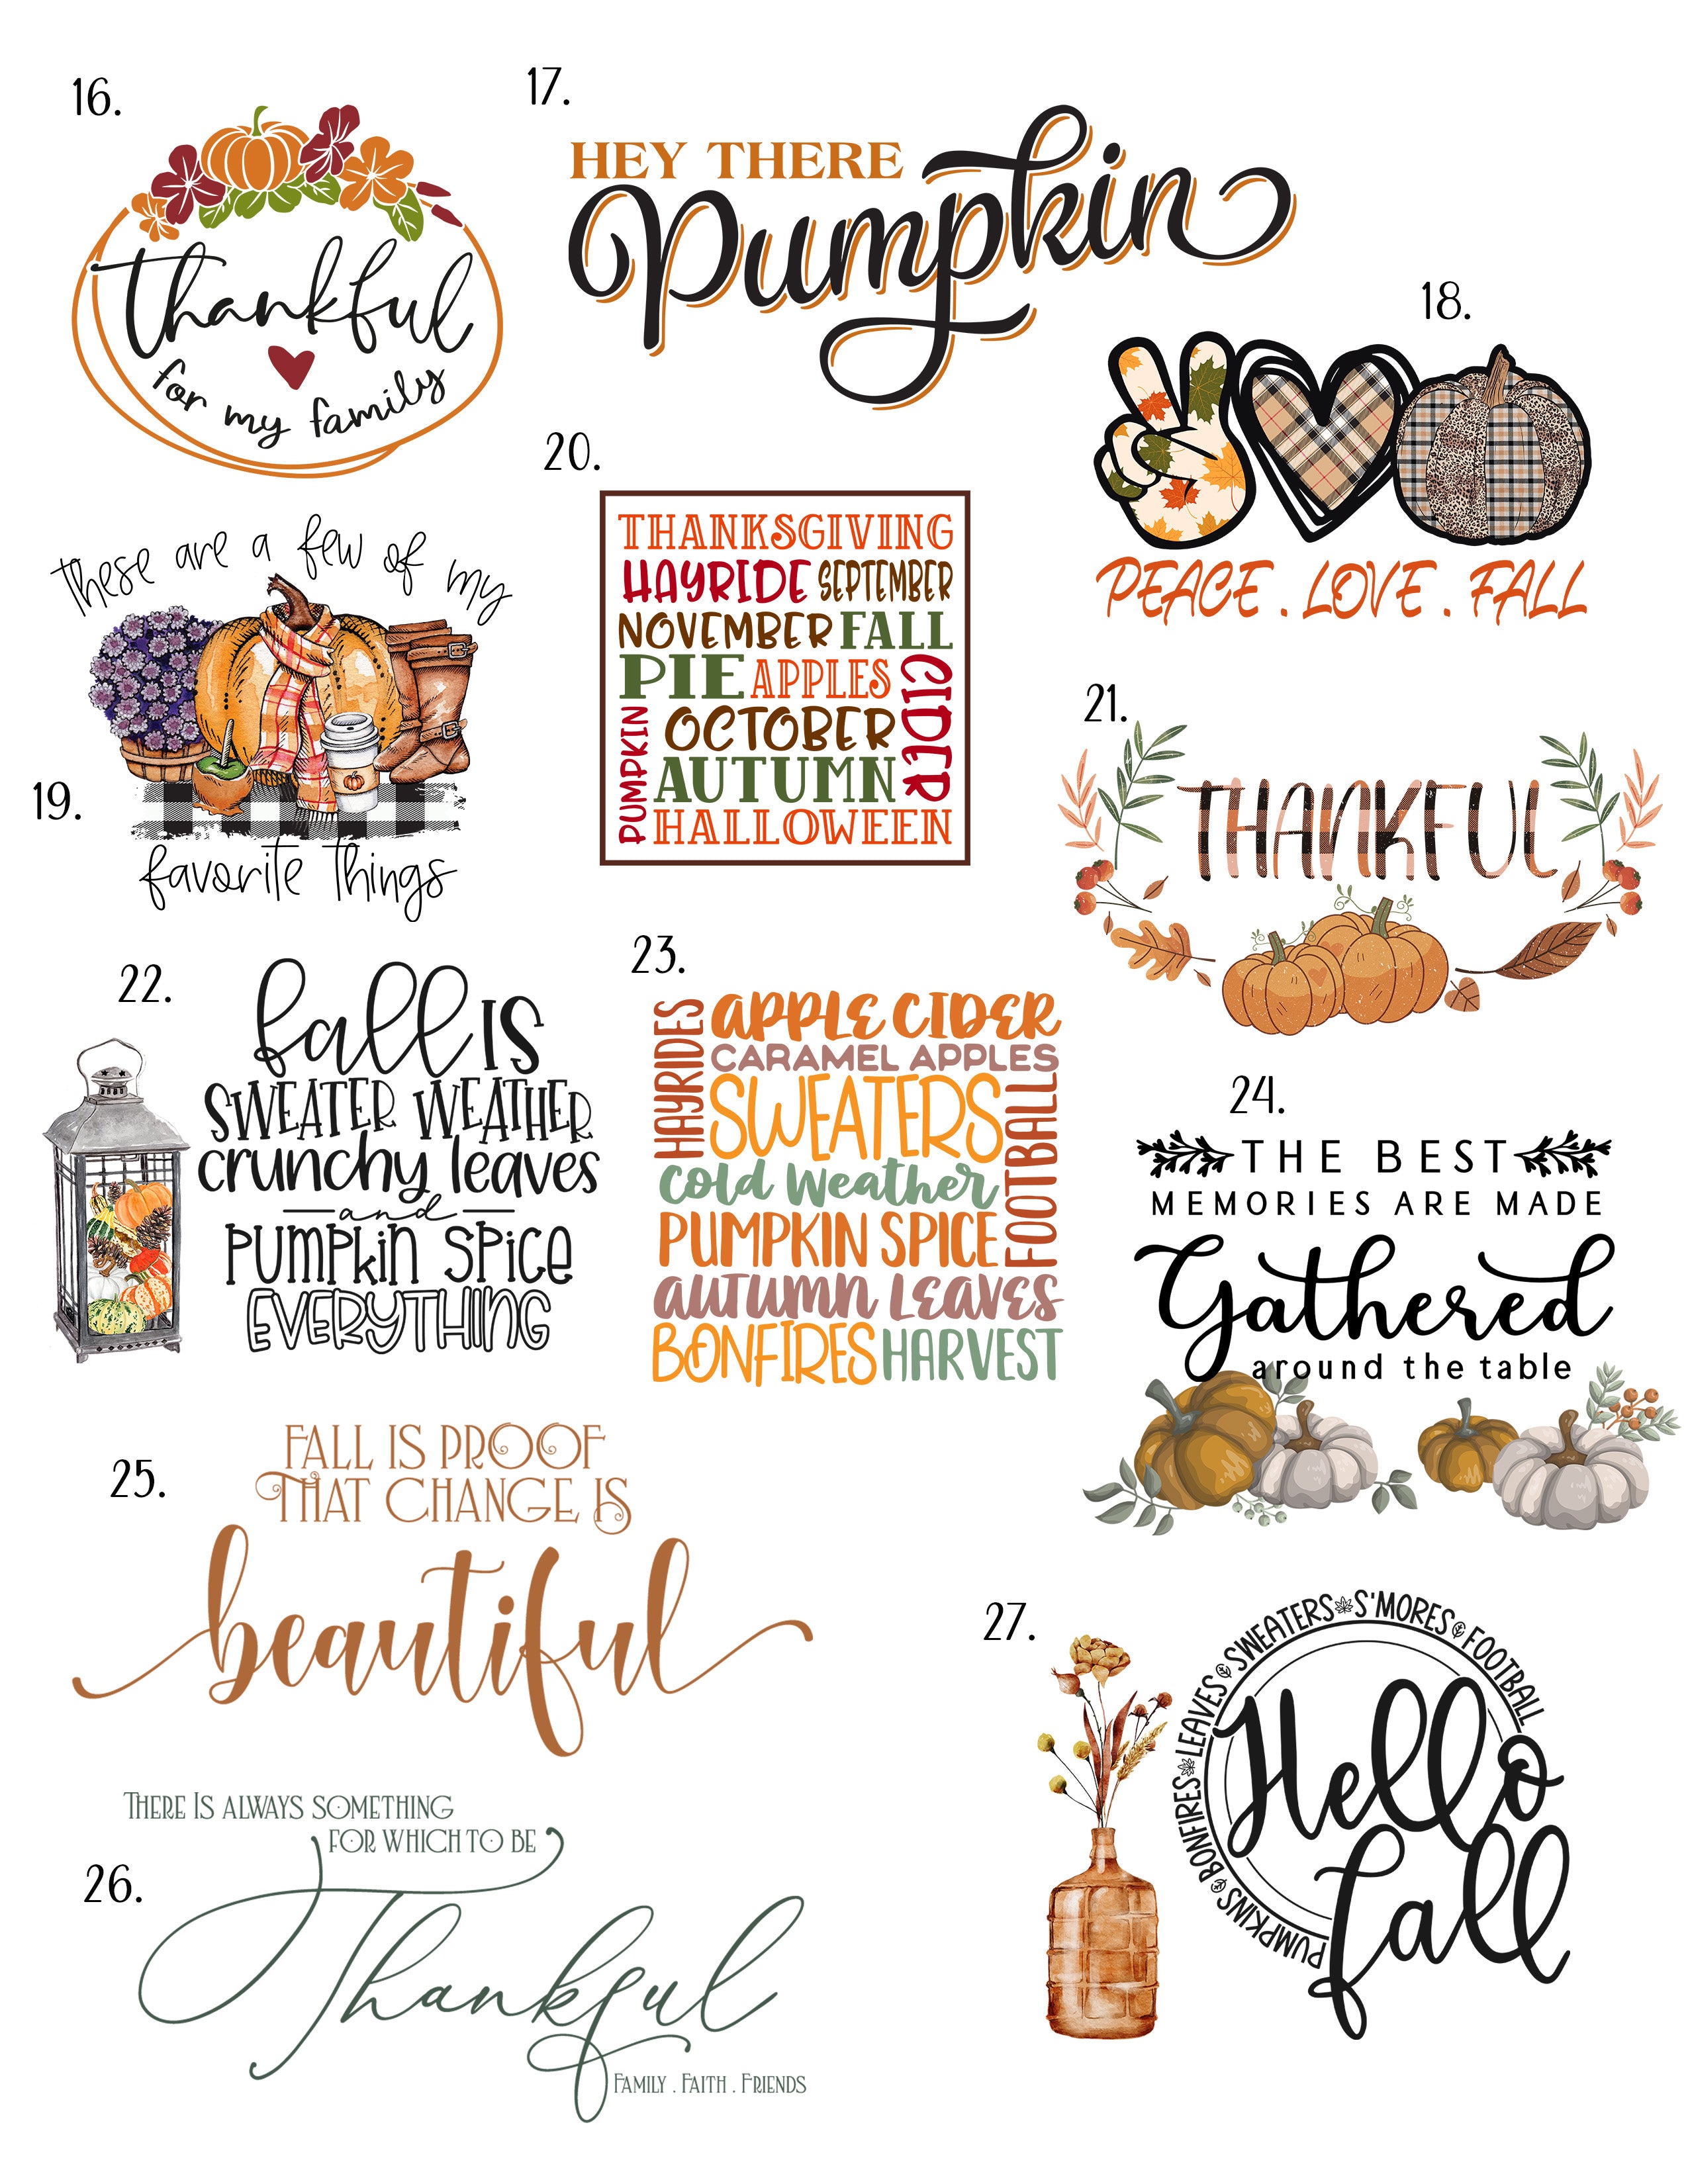 16.
thankful
for my family
17.
HEY THERE
Pumpkin
18.
PEACE . LOVE . FALL
19.
these are a few of my
favorite things
20.
THANKSGIVING
HAYRIDE SEPTEMBER
NOVEMBER FALL
PIE APPLES
CIDER
PUMPKIN
OCTOBER
AUTUMN
HALLOWEEN
21.
THANKFUL
22.
fall IS
SWEATER WEATHER
crunchy leaves
and
PUMPKIN SPICE
EVERYTHING
23.
HAYRIDES
APPLE CIDER
CARAMEL APPLES
SWEATERS
FOOTBALL
Cold Weather
PUMPKIN SPICE
AUTUMN LEAVES
BONFIRES HARVEST
24.
THE BEST
MEMORIES ARE MADE
Gathered
around the table
25.
FALL IS PROOF
THAT CHANGE IS
beautiful
26.
THERE IS ALWAYS SOMETHING
FOR WHICH TO BE
Thankful
FAMILY . FAITH . FRIENDS
27.
PUMPKINS BONFIRES LEAVES SWEATERS S'MORES FOOTBALL
Hello
fall